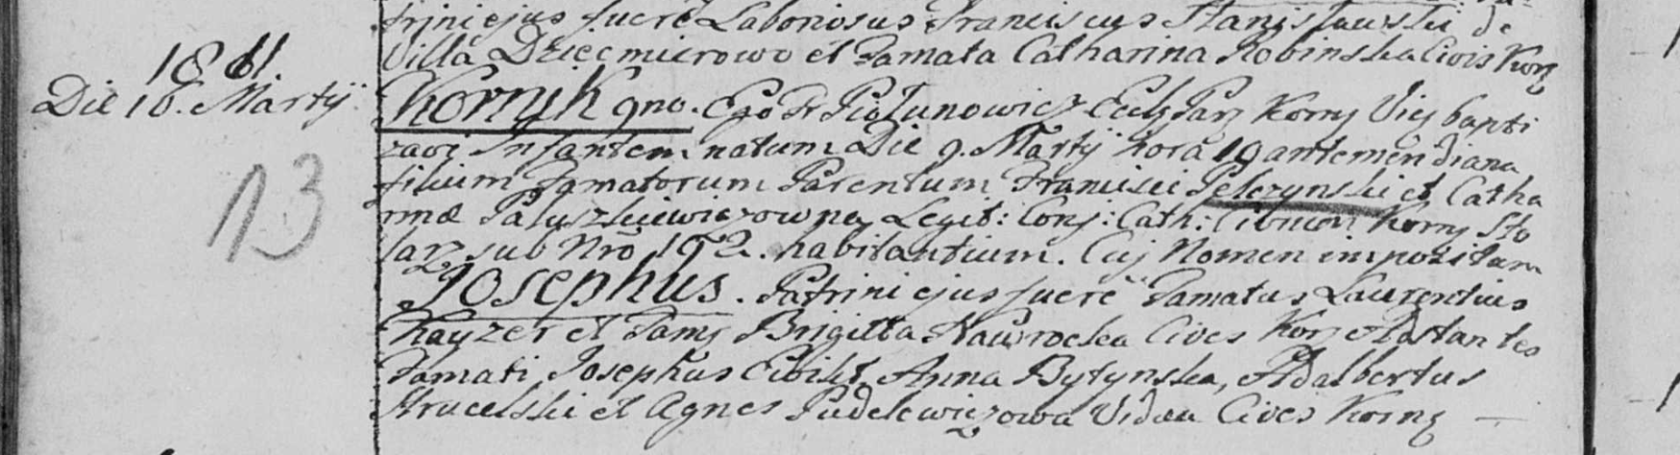 trini ejus fuere Laboriosus Franciscus Stanisławski de
Villa Dziećmierowo et Famata Catharina Robinska Civis Korn
Die 10. Martij
Kornik qno. Ego Fr Piotunowicz Eccls Par Korn Vic bapti
zavi Infantem natum Die 9. Martij hora 10 antemeridiana
13
filium Famatorum Parentum Francisci Pelczynski et Catha
rinæ Paluszkiewiczowna Legit: Conj: Cath: Civium Korn Sto
larz sub Nro 192. habitantium. Cuj Nomen impositum
Josephus. Patrini ejus fuere Famatus Laurentius
Kayzer et Fam Brigitta Nawrocka Cives Kor Adstantes
Famati Josephus et Anna Bytynska, Adalbertus
et Agnes Pudelewiczowa Vidua Cives Korn